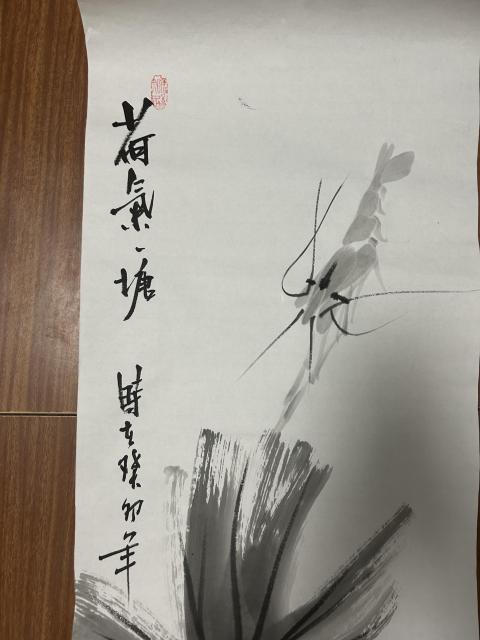 荷氣一塘
時在癸卯年